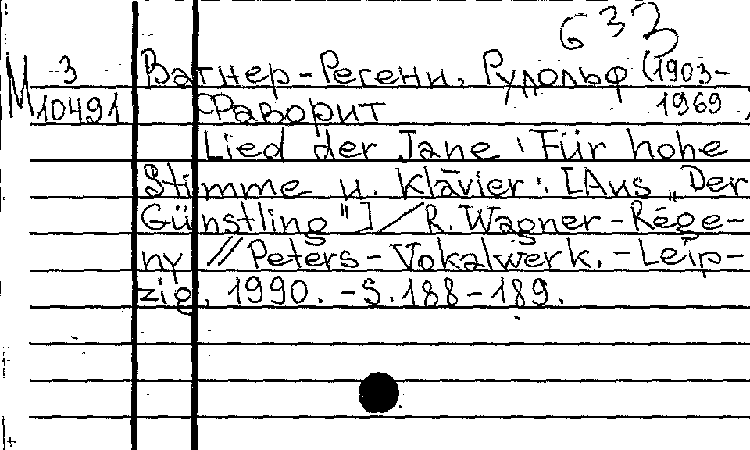 633
М 3 Вагнер-Регени, Рудольф (1903-
10491 Фаворит 1969,
Lied der Jane : Für hohe
Stimme u. Klavier : [Aus „Der
Günstling"] / R. Wagner-Rége-
ny // Peters-Vokalwerk. - Leip-
zig, 1990. - S. 188-189.